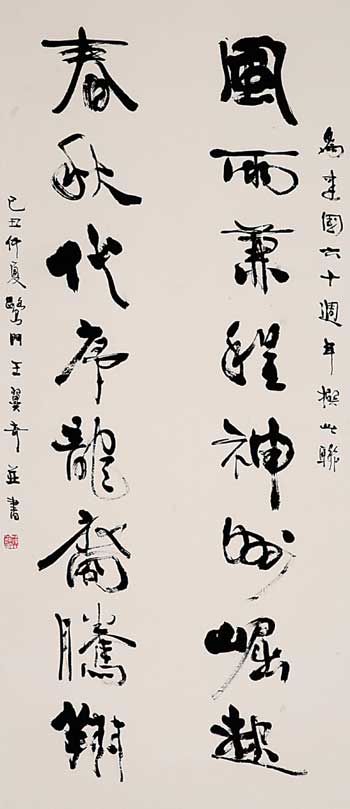 為建國六十週年撰此聯
風雨兼程神州崛起
春秋代序龍裔騰翔
己丑仲夏鷺門王翼奇並書